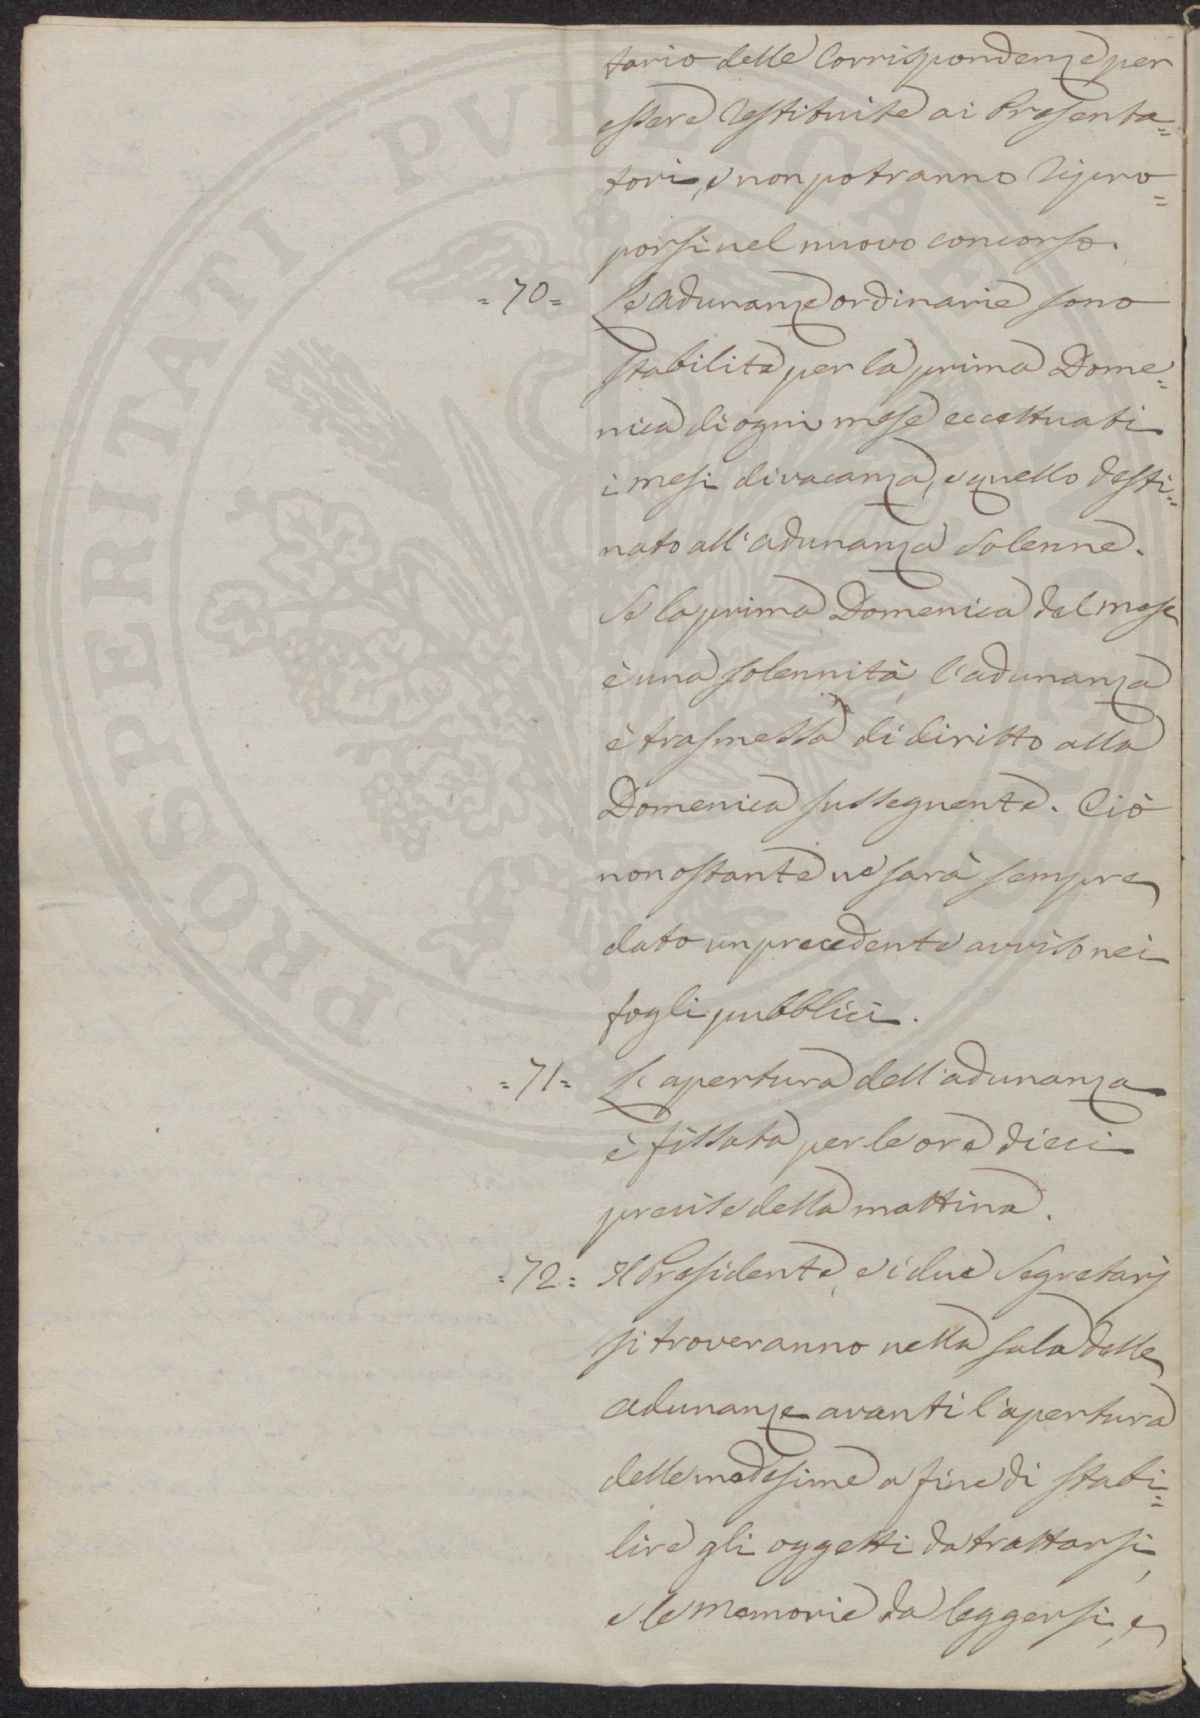 tario delle Corrispondenze per
essere restituite ai Presenta=
tori, e non potranno ripro=
porsi nel nuovo concorso.
=70= Le adunanze ordinarie sono
stabilite per la prima Dome=
nica di ogni mese eccettuati
i mesi di vacanza, e quello desti=
nato all'adunanza solenne.
Se la prima Domenica del mese
è una solennità, l'adunanza
è trasmessa di diritto alla
Domenica susseguente. Ciò
non ostante ne sarà sempre
dato un precedente avviso nei
fogli pubblici.
=71= L'apertura dell'adunanza
è fissata per le ore dieci
precise della mattina.
=72= Il Presidente, e i due Segretarj
si troveranno nella sala delle
adunanze avanti l'apertura
delle medesime a fine di stabi=
lire gli oggetti da trattarsi,
e le memorie da leggersi, e
PROSPERITATI PVBLICAE